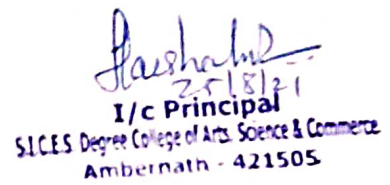 25/8/21
I/c Principal
S.I.C.E.S. Degree College of Arts, Science & Commerce
Ambernath - 421505.